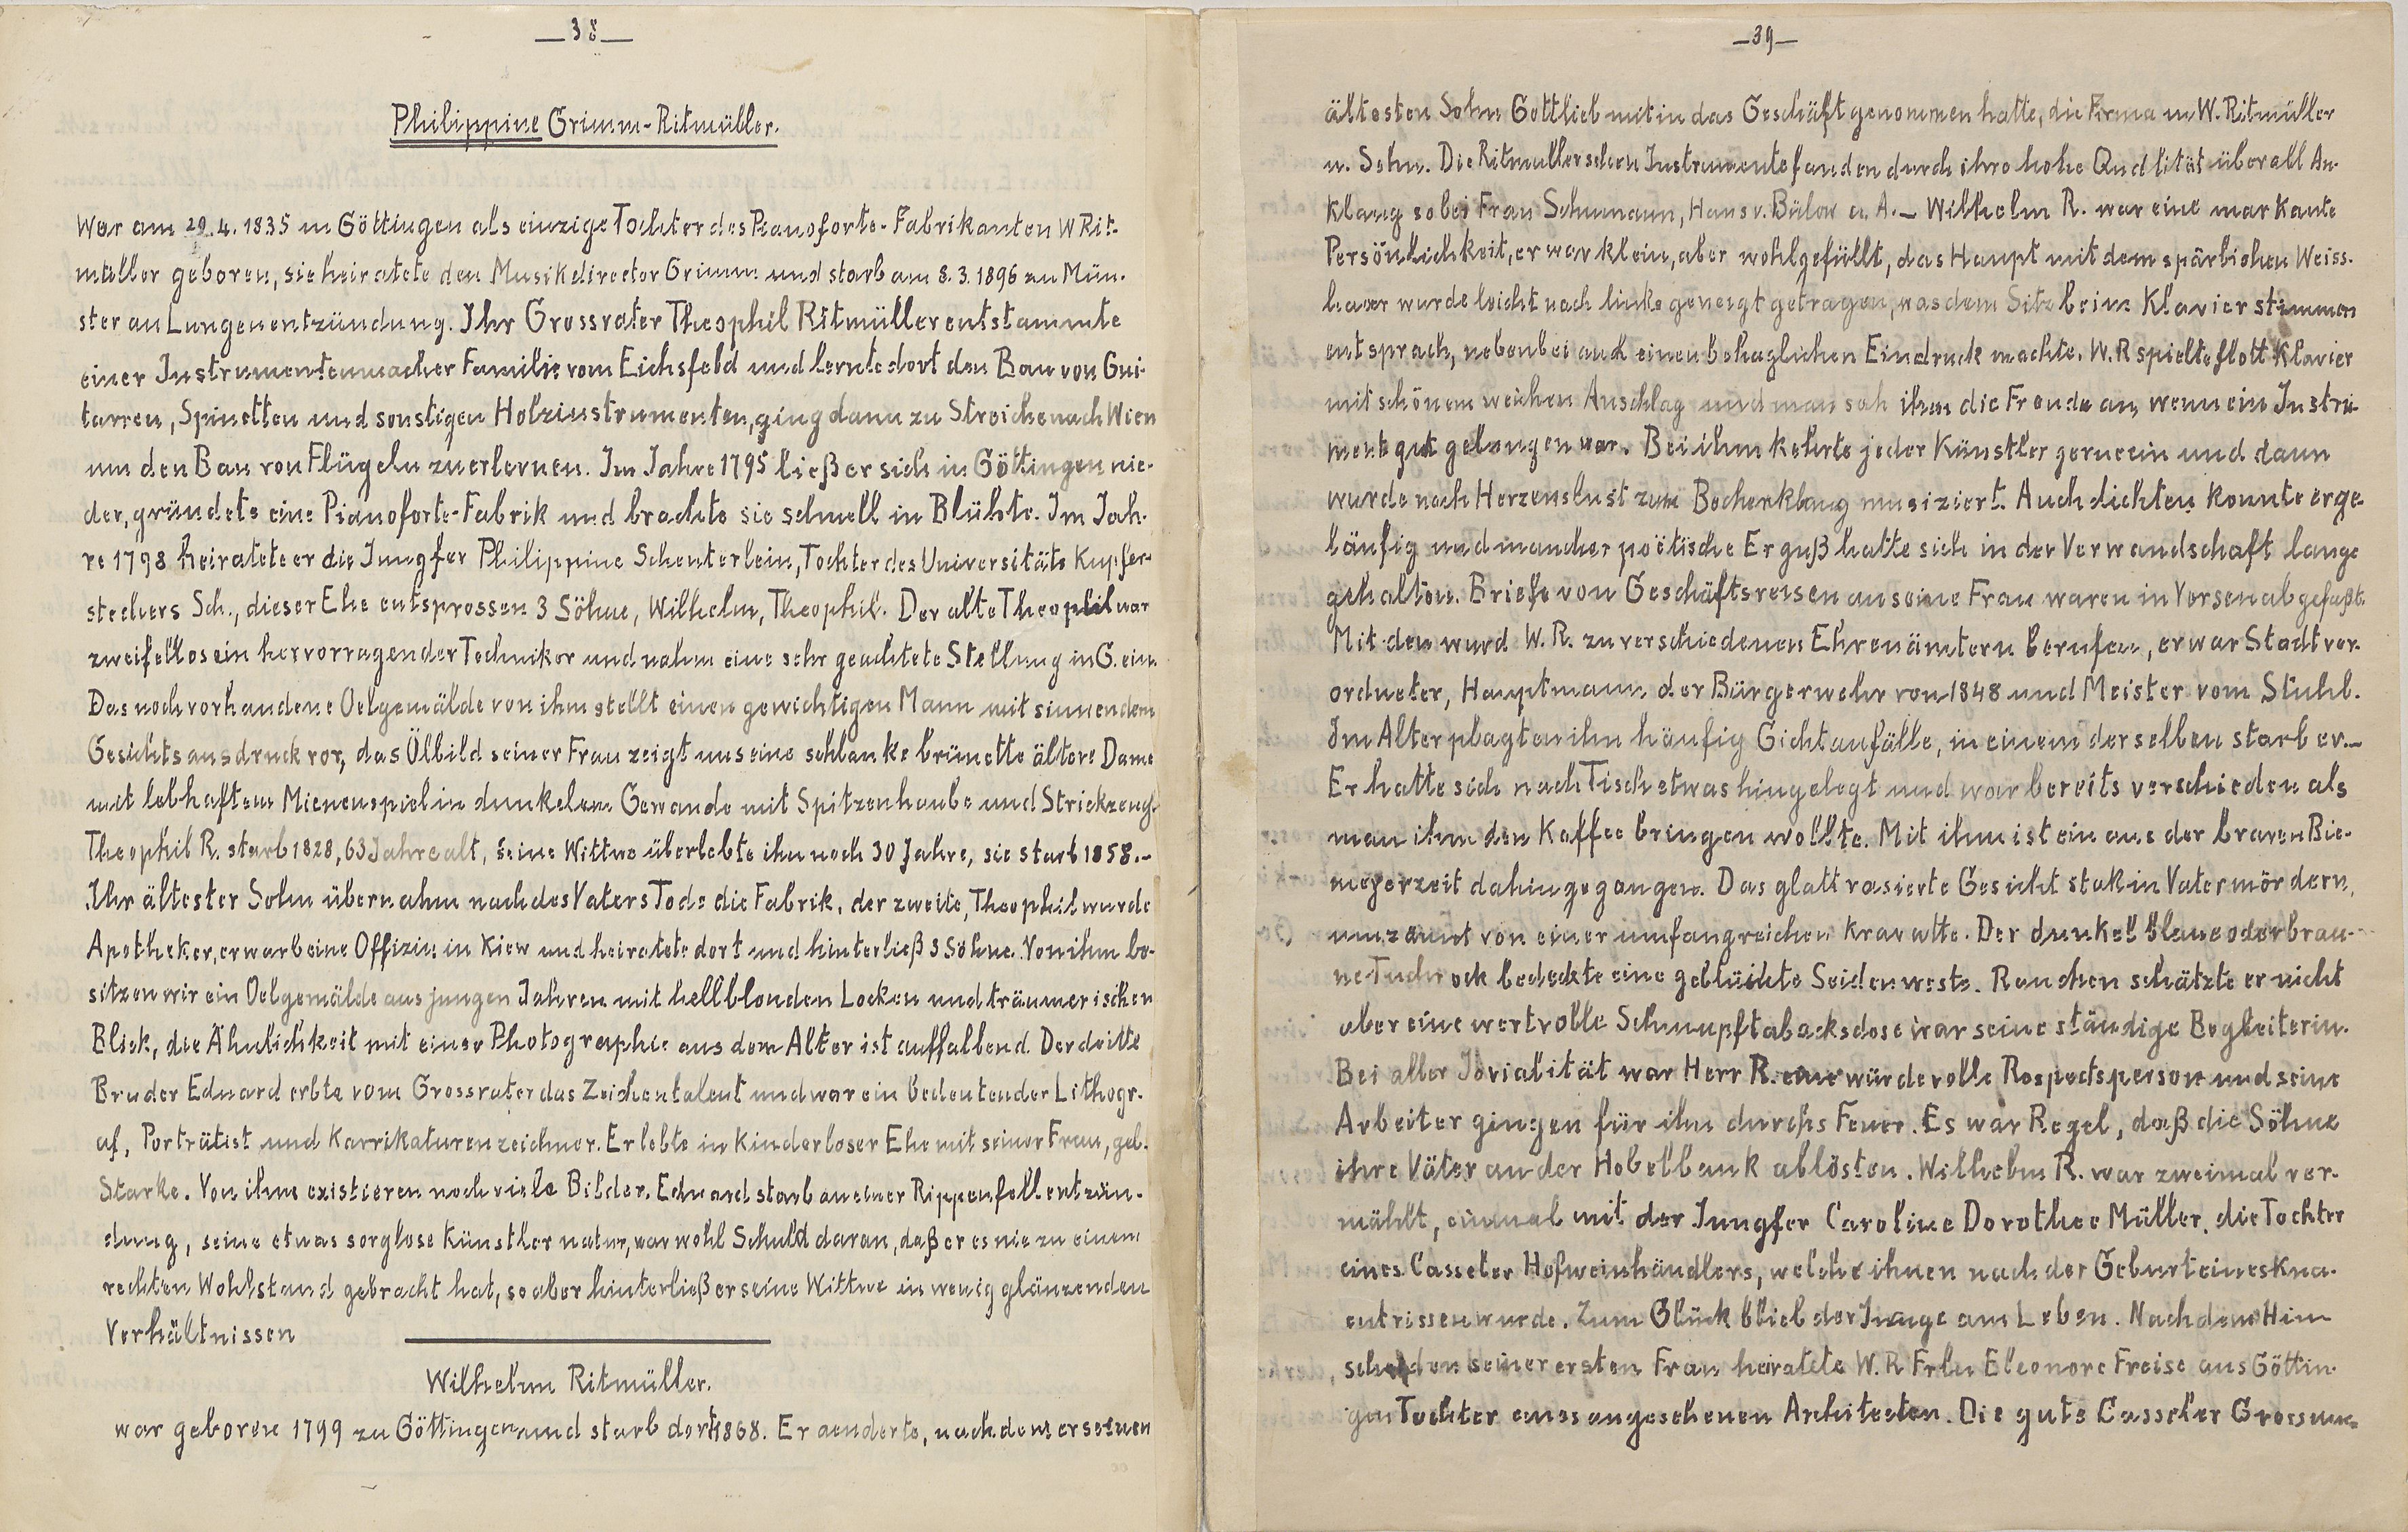 —38—
Philippine Grimm-Ritmüller.
War am 29.4.1835 in Göttingen als einzige Tochter des Pianoforte-Fabrikanten W Rit-
müller geboren, sie heiratete den Musikdirector Grimm und starb am 8.3.1896 zu Mün-
ster an Lungenentzündung. Ihr Grossvater Theophil Ritmüller entstammte
einer Instrumentenmacher Familie vom Eichsfeld und lernte dort den Bau von Gui-
tarren, Spinetten und sonstigen Holzinstrumenten, ging dann zu Streiche nach Wien
um den Bau von Flügeln zu erlernen. Im Jahre 1795 ließ er sich in Göttingen nie-
der, gründete eine Pianoforte-Fabrik und brachte sie schnell in Blühte. Im Jah-
re 1798 heiratete er die Jungfer Philippine Schenterlein, Tochter des Universitäts Kupfer-
stechers Sch., dieser Ehe entsprossen 3 Söhne, Wilhelm, Theophil. Der alte Theophil war
zweifellos ein hervorragender Techniker und nahm eine sehr geachtete Stellung in G. ein.
Das noch vorhandene Oelgemälde von ihm stellt einen gewichtigen Mann mit sinnendem
Gesichtsausdruck vor, das Ölbild seiner Frau zeigt uns eine schlanke brünette ältere Dame
mit lebhaftem Mienenspiel in dunkelem Gewande mit Spitzenhaube und Strickzeug.
Theophil R. starb 1828, 63 Jahre alt, seine Wittwe überlebte ihn noch 30 Jahre, sie starb 1858.–
Ihr ältester Sohn übernahm nach des Vaters Tode die Fabrik, der zweite, Theophil wurde
Apotheker, erwarb eine Offizin in Kiew und heiratete dort und hinterließ 3 Söhne. Von ihm be-
sitzen wir ein Oelgemälde aus jungen Jahren mit hellblonden Locken und träumerischen
Blick, die Ähnlichkeit mit einer Photographie aus dem Alter ist auffallend. Der dritte
Bruder Eduard erbte vom Grossvater das Zeichentalent und war ein bedeutender Lithogr-
af, Porträtist und Karrikaturenzeichner. Er lebte in kinderloser Ehe mit seiner Frau, geb.
Starke. Von ihm existieren noch viele Bilder. Eduard starb an einer Rippenfellentzün-
dung, seine etwas sorglose Künstlernatur, war wohl Schuld daran, daß er es nie zu einem
rechten Wohlstand gebracht hat, so aber hinterließ er seine Wittwe in wenig glänzenden
Verhältnissen
Wilhelm Ritmüller.
war geboren 1799 zu Göttingen und starb dort 1868. Er aenderte, nachdem er seinen
—39—
ältesten Sohn Gottlieb mit in das Geschäft genommen hatte, die Firma in W. Ritmüller
u. Sohn. Die Ritmullerschen Instrumente fanden durch ihre hohe Qualität überall An-
klang so bei Frau Schumann, Hans v. Bülow u. A.– Wilhelm R. war eine markante
Persönlichkeit, er war klein, aber wohlgefüllt, das Haupt mit dem spärlichen Weiss-
haar wurde leicht nach links geneigt getragen, was dem Sitz beim Klavier stimmen
entsprach, nebenbei auch einen behaglichen Eindruck machte. W. R spielte flott Klavier
mit schönem weichen Anschlag und man sah ihm die Freude an, wenn ein Instru-
ment gut gelungen war. Bei ihm kehrte jeder Künstler gerne ein und dann
wurde nach Herzenslust zum Becherklang musiziert. Auch dichten konnte er ge-
läufig und mancher poëtische Erguß hatte sich in der Verwandschaft lange
gehalten. Briefe von Geschäftsreisen an seine Frau waren in Versen abgefaßt.
Mit den wurd W. R. zu verschiedenen Ehrenämtern berufen, er war Stadtver-
ordneter, Hauptmann der Bürgerwehr von 1848 und Meister vom Stuhl.
Im Alter plagten ihn häufig Gichtanfälle, in einem derselben starb er.–
Er hatte sich nach Tisch etwas hingelegt und war bereits verschieden als
man ihm den Kaffee bringen wollte. Mit ihm ist ein aus der braven Bie-
meyerzeit dahingegangen. Das glatt rasierte Gesicht stak in Vatermördern,
umzäunt von einer umfangreichen Kravatte. Der dunkelblaue oder brau-
ne Tuchrock bedeckte eine geblümte Seidenweste. Rauchen schätzte er nicht
aber eine wertvolle Schnupftabacksdose war seine ständige Begleiterin.
Bei aller Jovialität war Herr R. eine würdevolle Respectsperson und seine
Arbeiter gingen für ihn durchs Feuer. Es war Regel, daß die Söhne
ihre Väter an der Hobelbank ablösten. Wilhelm R. war zweimal ver-
mählt, einmal mit der Jungfer Caroline Dorothee Müller, die Tochter
eines Casseler Hofweinhändlers, welche ihnen nach der Geburt eines Kna-
entrissen wurde. Zum Glück blieb der Junge am Leben. Nach dem Hin
scheiden seiner ersten Frau heiratete W. R Frln Eleonore Freise aus Göttin-
gen Tochter eines angesehenen Architecten. Die gute Casseler Grossm